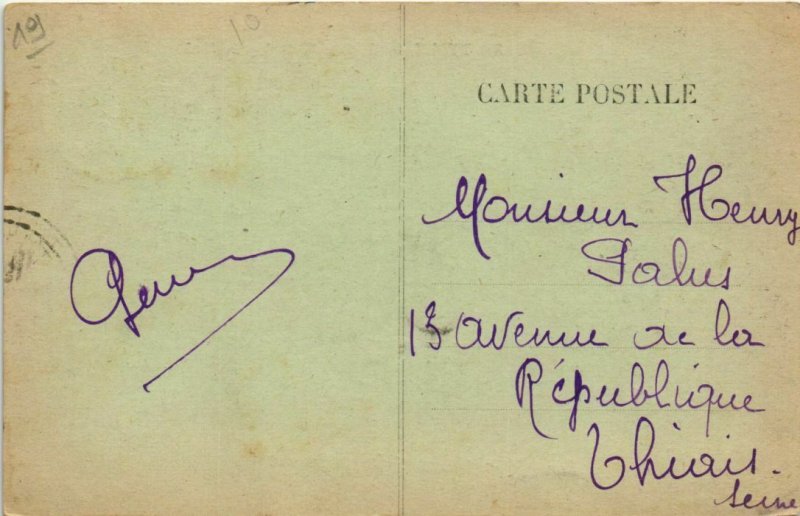 19
10
CARTE POSTALE
Monsieur Henry
Palus
13 avenue de la
République
Thiais.
Seine